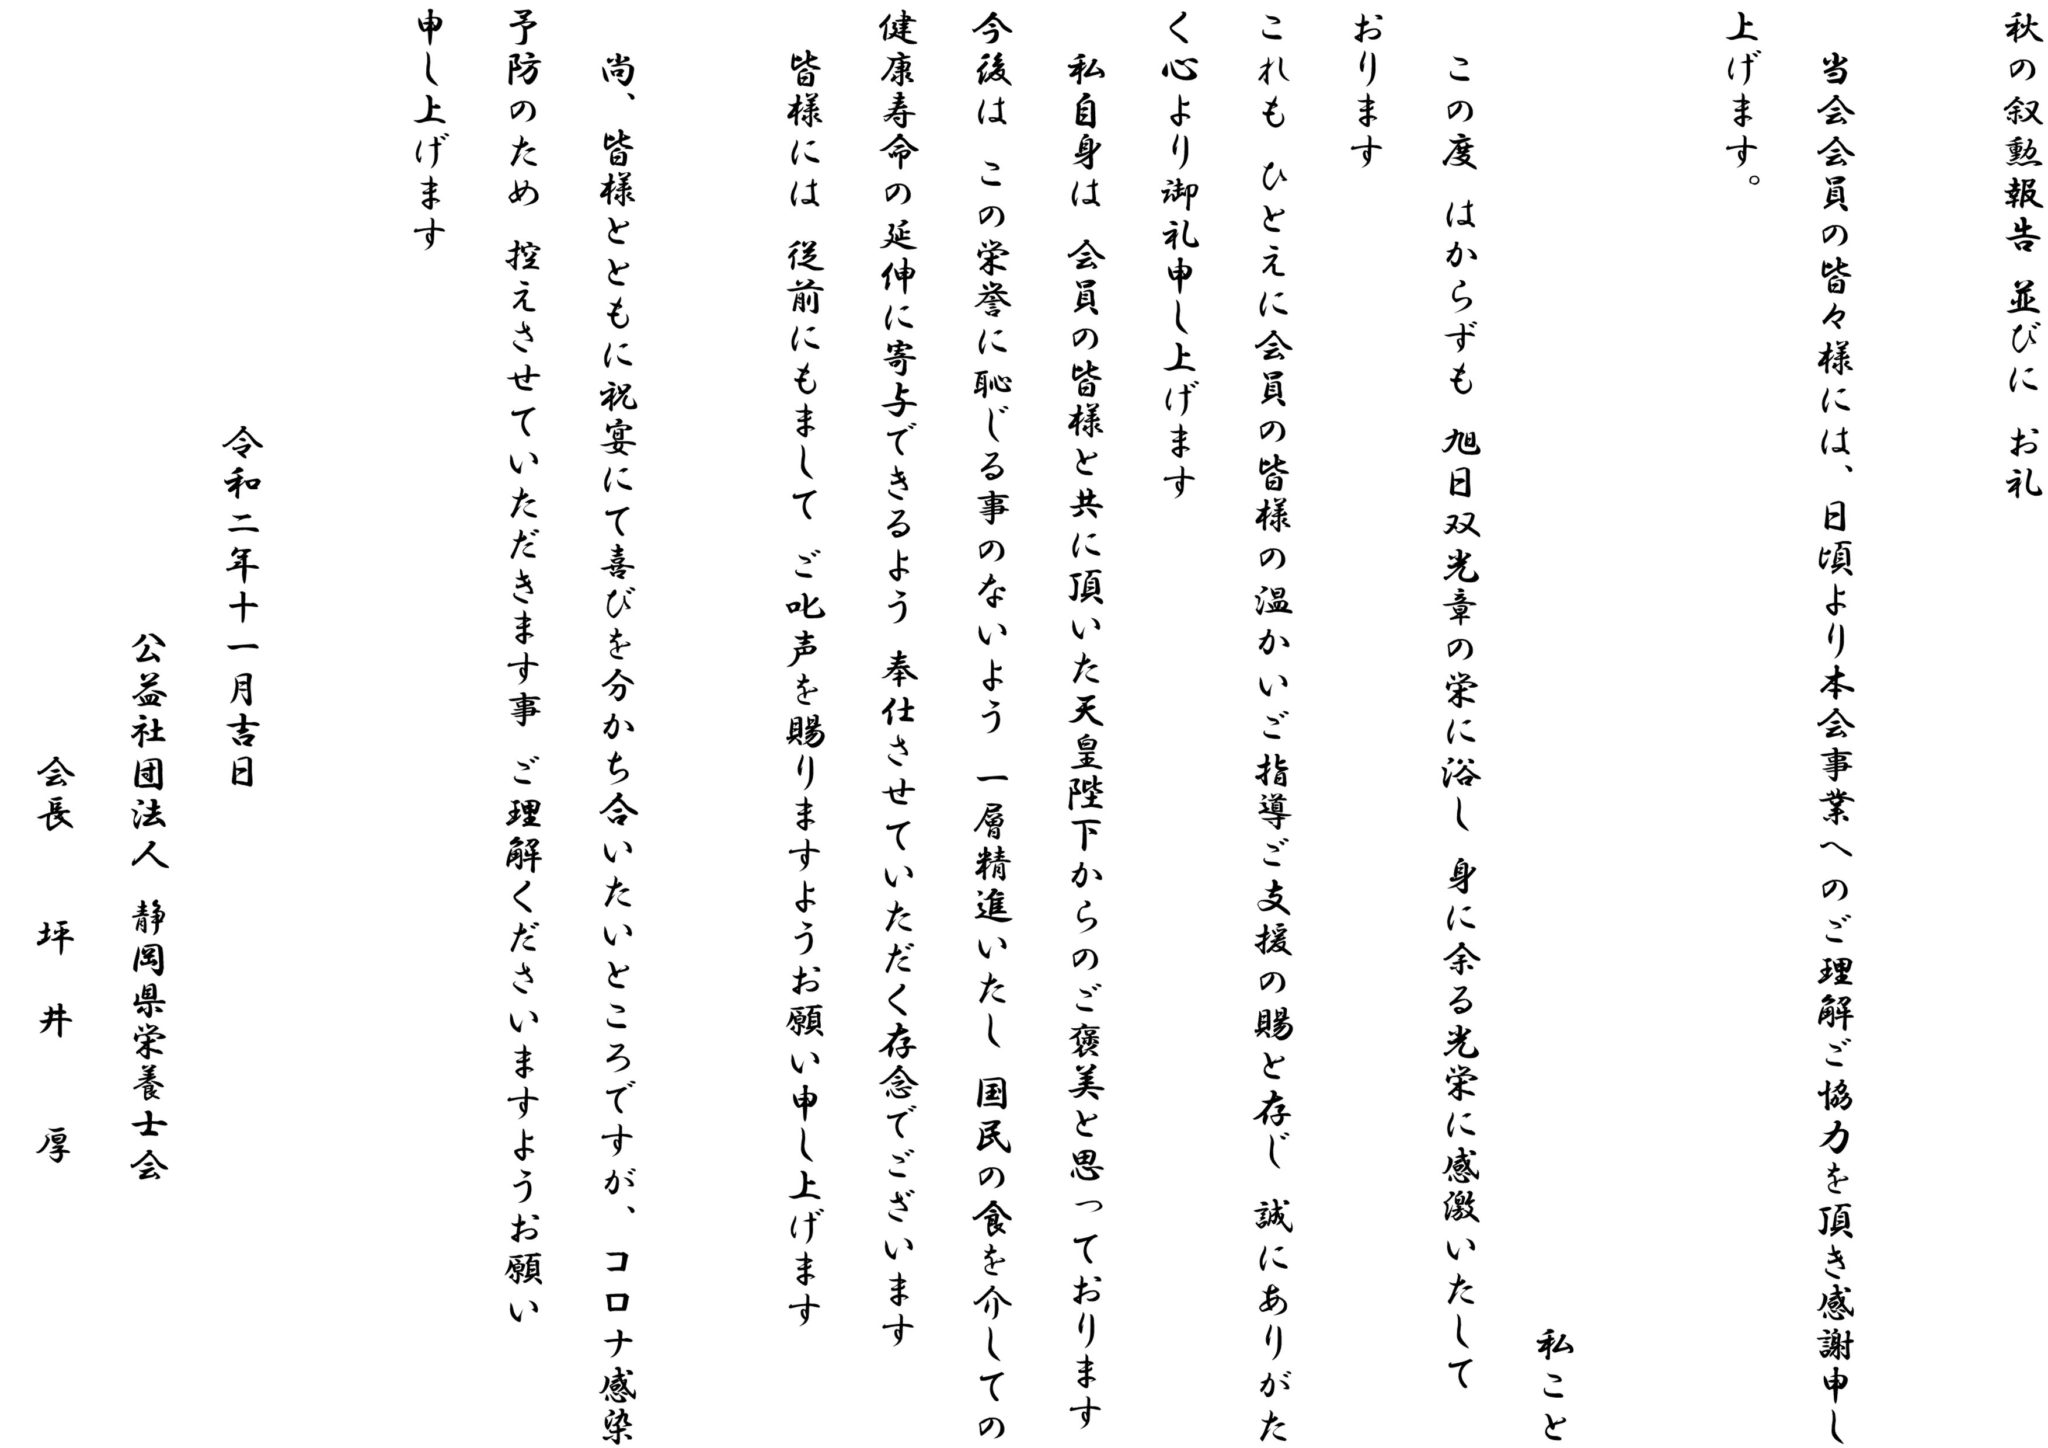 秋の叙勲報告 並びに お礼
当会会員の皆々様には、日頃より本会事業へのご理解ご協力を頂き感謝申し
上げます。
私こと
この度 はからずも 旭日双光章の栄に浴し 身に余る光栄に感激いたして
おります
これも ひとえに会員の皆様の温かいご指導ご支援の賜と存じ 誠にありがた
く心より御礼申し上げます
私自身は 会員の皆様と共に頂いた天皇陛下からのご褒美と思っております
今後は この栄誉に恥じる事のないよう 一層精進いたし 国民の食を介しての
健康寿命の延伸に寄与できるよう 奉仕させていただく存念でございます
皆様には 従前にもまして ご叱声を賜りますようお願い申し上げます
尚、皆様とともに祝宴にて喜びを分かち合いたいところですが、コロナ感染
予防のため 控えさせていただきます事 ご理解くださいますようお願い
申し上げます
令和二年十一月吉日
公益社団法人 静岡県栄養士会
会長 坪井 厚